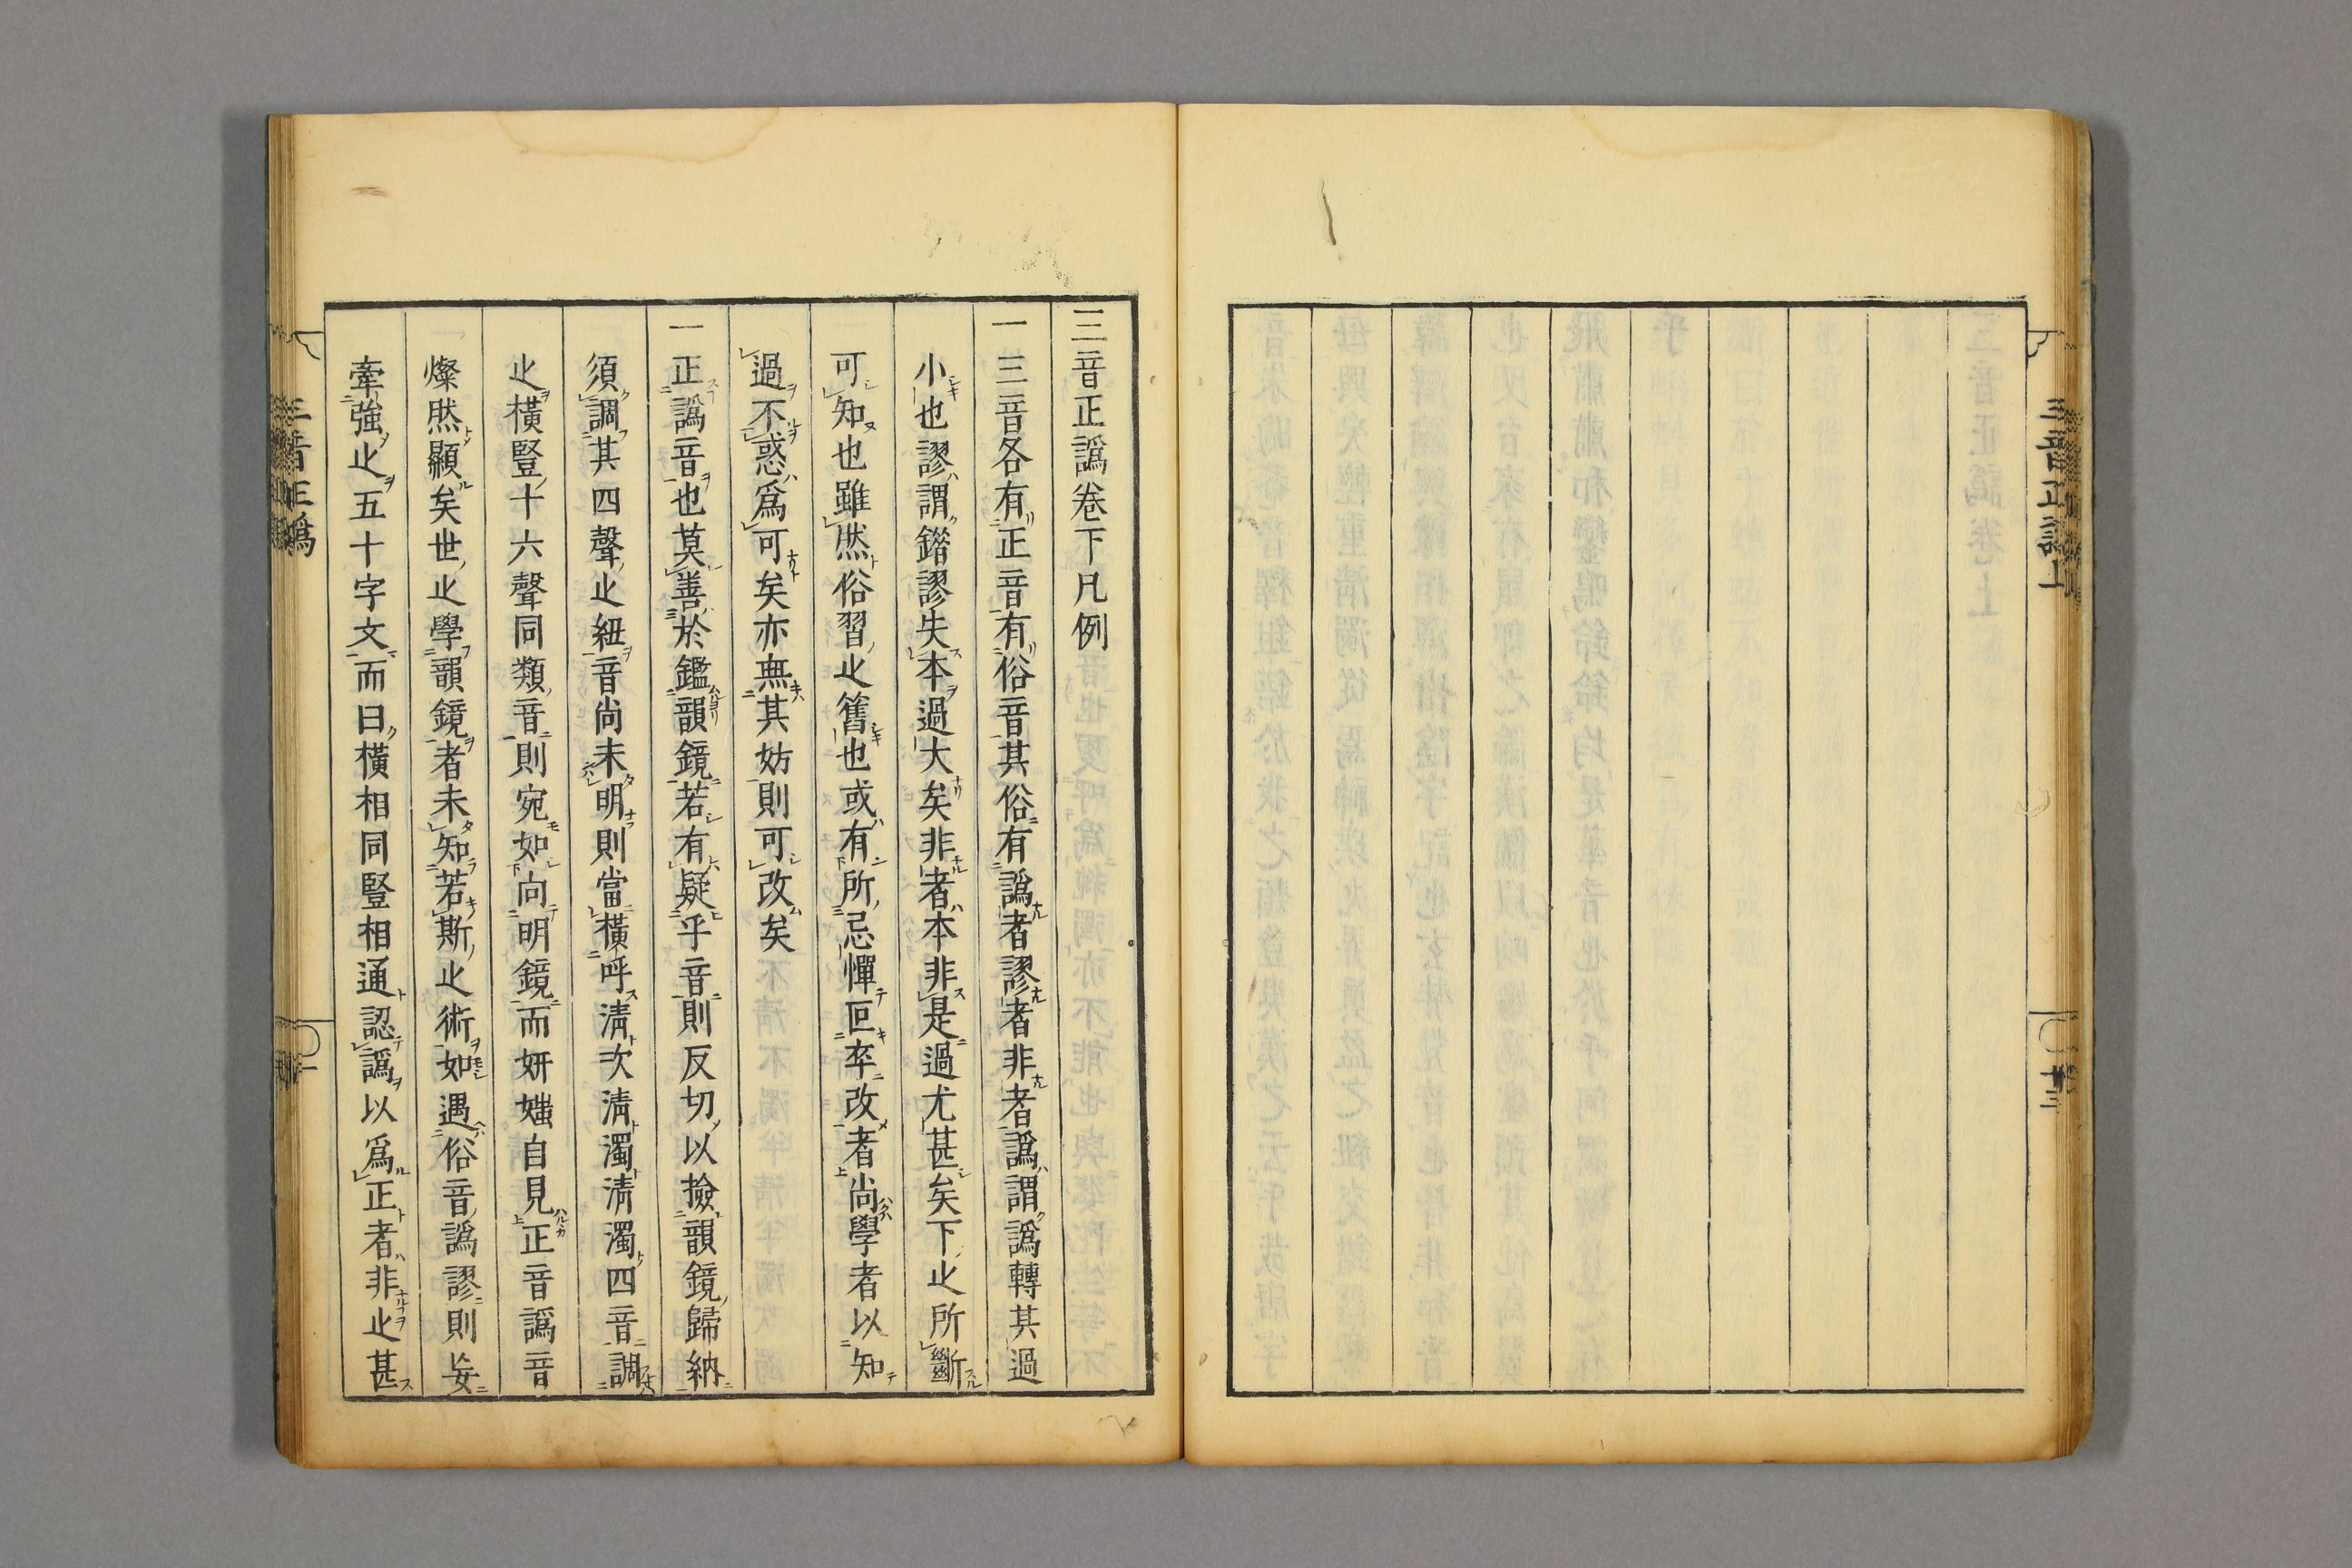 三音正譌上
十三
三音正譌卷下凡例
一三音各有正音有俗音其俗有譌者謬者非者譌謂譌轉其過
小也謬謂錯謬失本過大矣非者本非是過尤甚矣下之所斷
可知也雖然俗習之舊也或有所忌憚叵卒改者尚學者以知
過不惑爲可矣亦無其妨則可改矣
一正譌音也莫善於鑑韻鏡若有疑乎音則反切以撿韻鏡歸納
須調其四聲之紐音尚未明則當橫呼淸次淸濁淸濁四音調
之橫豎十六聲同類音則宛如向明鏡而妍媸自見正音譌音
燦然顯矣世之學韻鏡者未知若斯之術如遇俗音譌謬則妄
牽強之五十字文而曰橫相同豎相通認譌以爲正者非之甚
三音正譌